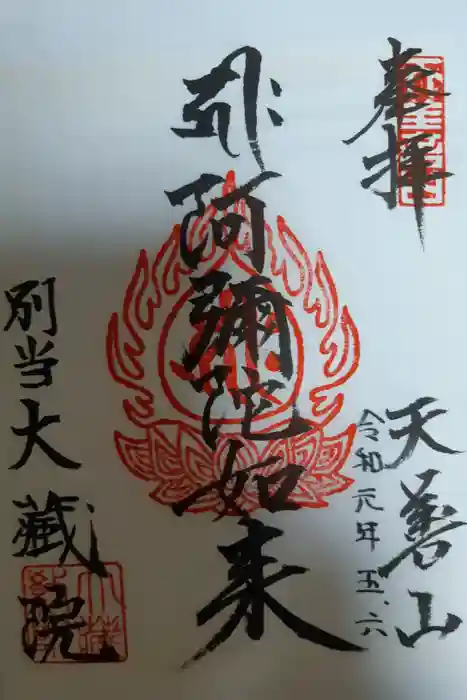 奉拝
天善山
令和元年五、六
阿彌陀如来
別当大蔵院